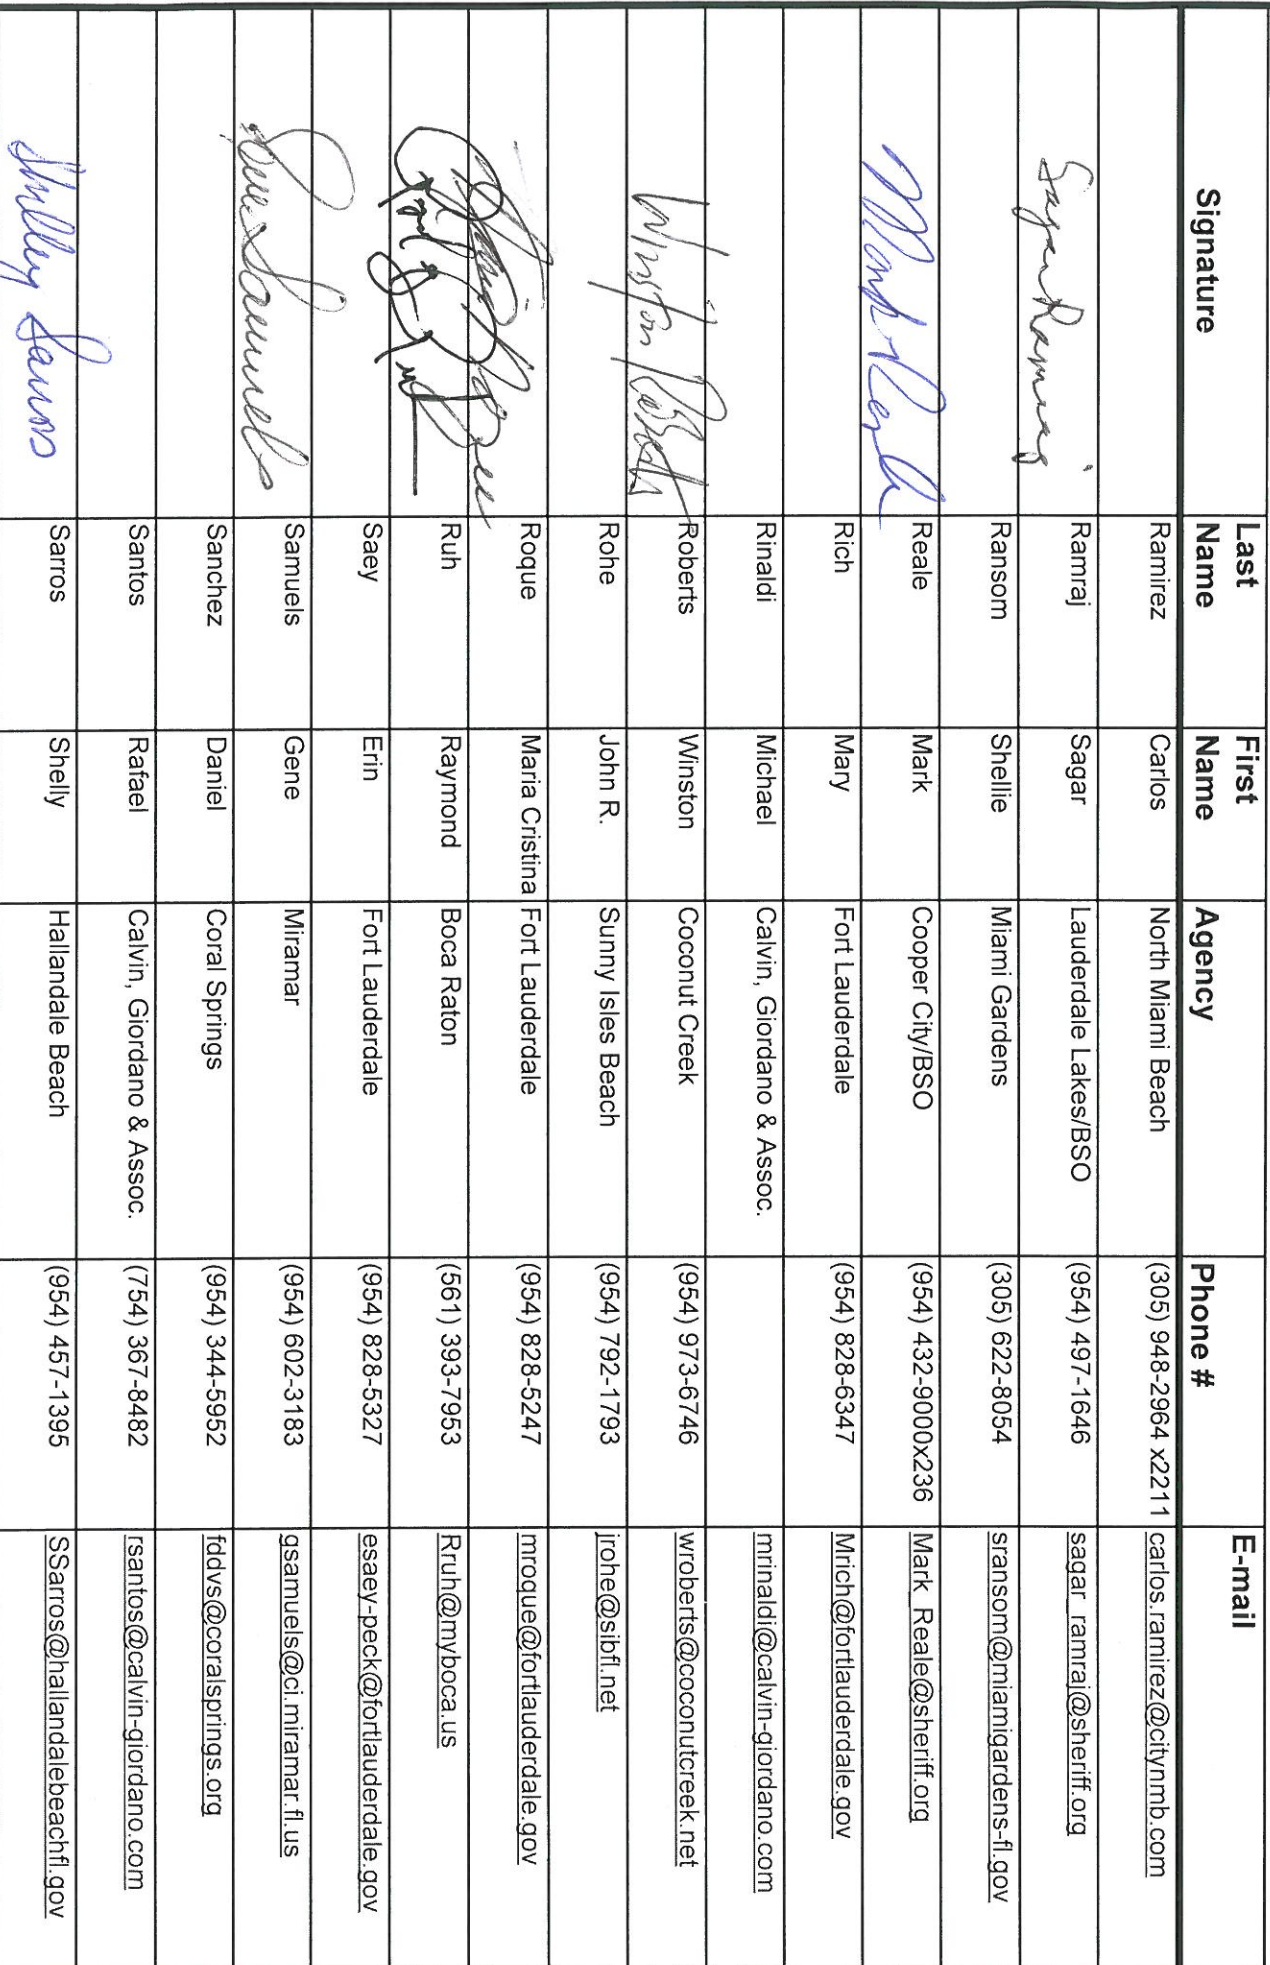 Signature Last Name First Name Agency Phone # E-mail
Ramirez Carlos North Miami Beach (305) 948-2964 x2211 carlos.ramirez@citynmb.com
Sagar Ramraj Ramraj Sagar Lauderdale Lakes/BSO (954) 497-1646 sagar_ramraj@sheriff.org
Ransom Shellie Miami Gardens (305) 622-8054 sransom@miamigardens-fl.gov
Mark Reale Reale Mark Cooper City/BSO (954) 432-9000x236 Mark_Reale@sheriff.org
Rich Mary Fort Lauderdale (954) 828-6347 Mrich@fortlauderdale.gov
Rinaldi Michael Calvin, Giordano & Assoc. mrinaldi@calvin-giordano.com
Winston Roberts Roberts Winston Coconut Creek (954) 973-6746 wroberts@coconutcreek.net
Rohe John R. Sunny Isles Beach (954) 792-1793 jrohe@sibfl.net
Roque Maria Cristina Fort Lauderdale (954) 828-5247 mroque@fortlauderdale.gov
Ruh Raymond Boca Raton (561) 393-7953 Rruh@myboca.us
Saey Erin Fort Lauderdale (954) 828-5327 esaey-peck@fortlauderdale.gov
Gene Samuels Samuels Gene Miramar (954) 602-3183 gsamuels@ci.miramar.fl.us
Sanchez Daniel Coral Springs (954) 344-5952 fddvs@coralsprings.org
Santos Rafael Calvin, Giordano & Assoc. (754) 367-8482 rsantos@calvin-giordano.com
Shelley Sarros Sarros Shelly Hallandale Beach (954) 457-1395 SSarros@hallandalebeachfl.gov